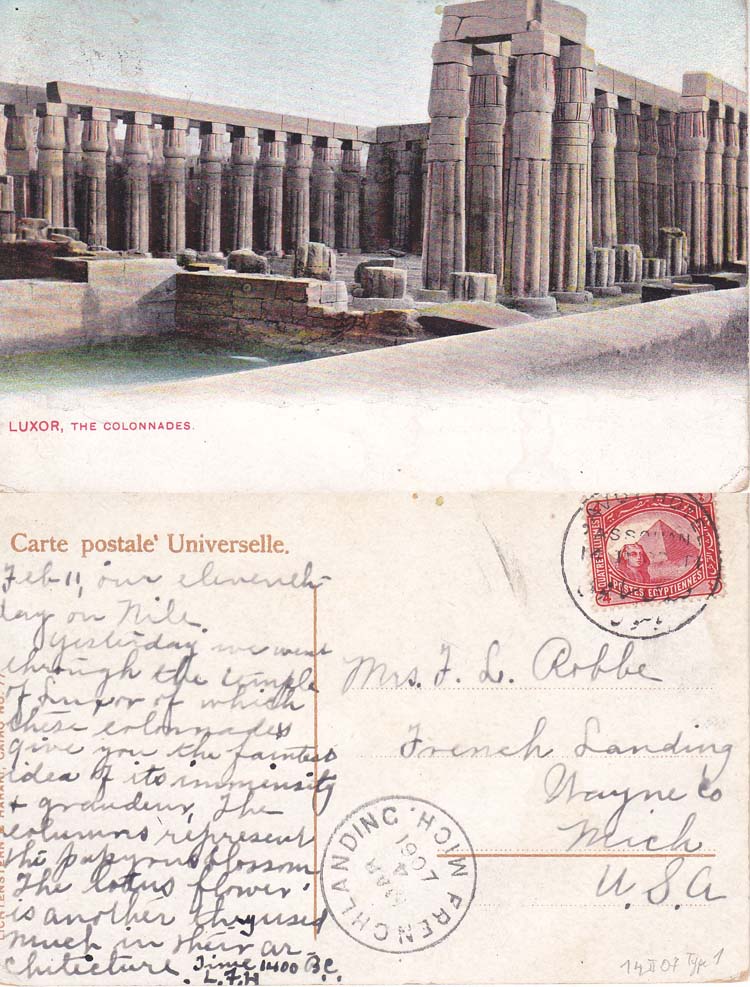 LUXOR, THE COLONNADES.
Carte postale' Universelle.
Feb 11, our eleventh
day on Nile.
Yesterday we went
through the temple
of Luxor of which
these colonnades
give you the faintest
idea of its immensity
& grandeur, The
columns represent
the papyrus blossom
The lotus flower
is another they used
much in their ar-
chitecture Time 1400 B.C.
L.F.H
LICHTENSTEIN & HARARI, CAIRO NO.
QUATRE MILLIEMES
POSTES EGYPTIENNES
Mrs. F. L. Robbe
French Landing
Wayne Co
Mich
U.S.A
FRENCHLANDING, MICH.
MAR
4
1907
14 II 07 Type 1